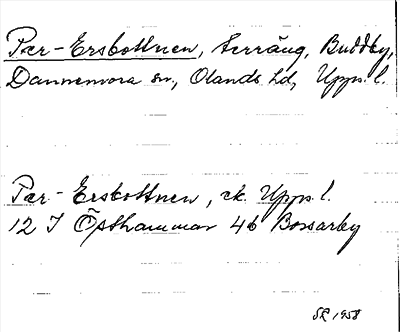 Per-Ersbottnen, terräng, Buddby,
Dannemora sn, Olands hd, Upps. l.
Per-Ersbottnen, ek. Upps. l.
12 I Östhammar 4b Bossarby
SR 1958